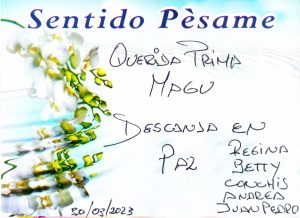 Sentido Pèsame
QUERIDA PRIMA
MAGU
DESCANSA EN
PAZ
REGINA
BETTY
CONCHIS
ANDREA
JUAN PEDRO
30/03/2023